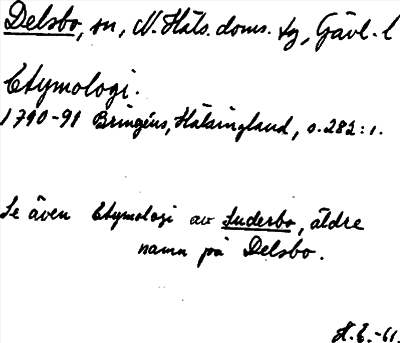 Delsbo, sn, N. Häls. doms. tg, Gävl. l
Etymologi.
1790-91 Bringéus, Hälsingland, s. 282: 1.
Se även Etymologi av Suderbo, äldre
namn på Delsbo.
H.E.-61.